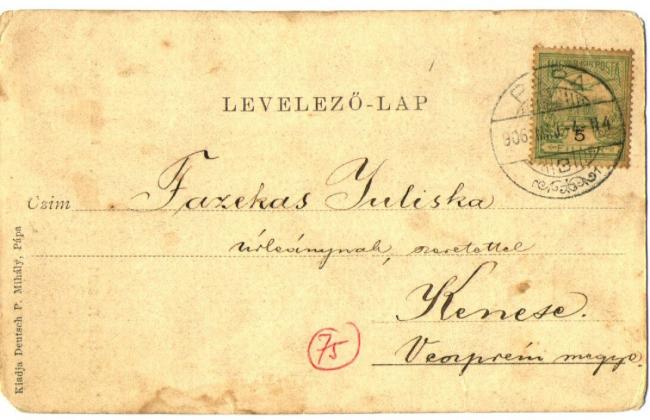 LEVELEZŐ-LAP
MAGYAR KIR. POSTA
PÁPA
906
5
Czím
Fazekas Juliska
úrleánynak, szeretettel
Kenese.
Veszprém megye.
75
Kiadja Deutsch P. Mihály, Pápa